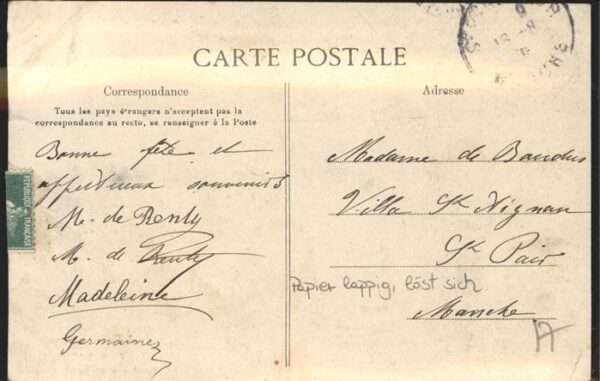 CARTE POSTALE
Correspondance
Tous les pays étrangers n'acceptent pas la
correspondance au recto, se renseigner à la Poste
Adresse
Bonne fête et
affectueux souvenirs
M. de Renty
M. de Renty
Madeleine
Germaine
Madame de Baudus
Villa St Aignan
St Pair
Manche
Papier lappig, löst sich
REPUBLIQUE FRANÇAISE